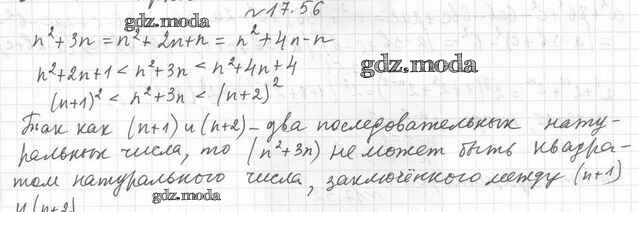 №17.56
gdz.moda
n²+3n = n²+2n+n = n²+4n-n
n²+2n+1 < n²+3n < n²+4n+4
gdz.moda
(n+1)² < n²+3n < (n+2)²
Так как (n+1) и (n+2) – два последовательных нату-
ральных числа, то (n²+3n) не может быть квадра-
том натурального числа, заключённого между (n+1)
gdz.moda
и (n+2)